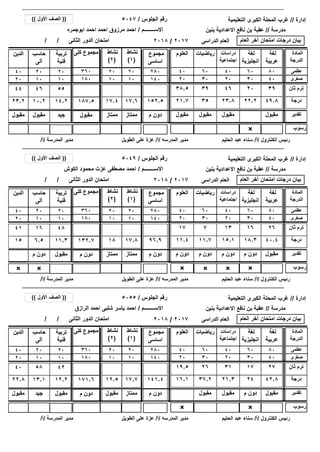 إدارة // غرب المحلة الكبرى التعليمية
رقم الجلوس / ٥٠٤٧
(( الصف الأول ))
مدرسة // عقبة بن نافع الاعدادية بنين
الاســـم / احمد مرزوق احمد احمد ابوجمره
بيان درجات امتحان أخر العام
العام الدراسى ٢٠١٧ / ٢٠١٨
امتحان الدور الثانى / /
المادة الدرجة
لغة عربية
لغة انجليزية
دراسات اجتماعية
رياضيات
العلوم
مجموع اساسى
نشاط (١)
نشاط (٢)
مجموع كلى
تربية فنية
حاسب ألى
الدين
عظمى ٨٠ ٦٠ ٤٠ ٦٠ ٤٠ ٢٨٠ ٢٠ ٢٠ ٣٦٠ ٢٠ ٢٠ ٤٠
صغرى ٤٠ ٣٠ ٢٠ ٣٠ ٢٠ ١٤٠ ١٠ ١٠ ١٨٠ ١٠ ١٠ ٢٠
ترم ثان ٣٩ ٢٠ ٤٦ ٣٩ ٣٨,٥ ٥٥ ٤٦ ٤٤
درجة ٤٩,٨ ٢٢,٢ ٢٣,٨ ٣٥ ٢١,٧ ١٥٢,٥ ١٧,٦ ١٧,٤ ١٨٧,٥ ١٤,٢ ١٠,٢ ٢٣,٢
تقدير مقبول مقبول مقبول مقبول مقبول ممتاز ممتاز مقبول جيد مقبول مقبول
رسوب ×
رئيس الكنترول // سناء عبد الحليم
مدرسة // عزة على الطويل
مدير المدرسة //
إدارة // غرب المحلة الكبرى التعليمية
رقم الجلوس / ٥٠٤٩
(( الصف الأول ))
مدرسة // عقبة بن نافع الاعدادية بنين
الاســـم / احمد مصطفى عزت محمود الكوش
بيان درجات امتحان أخر العام
العام الدراسى ٢٠١٧ / ٢٠١٨
امتحان الدور الثانى / /
المادة الدرجة
لغة عربية
لغة انجليزية
دراسات اجتماعية
رياضيات
العلوم
مجموع اساسى
نشاط (١)
نشاط (٢)
مجموع كلى
تربية فنية
حاسب ألى
الدين
عظمى ٨٠ ٦٠ ٤٠ ٦٠ ٤٠ ٢٨٠ ٢٠ ٢٠ ٣٦٠ ٢٠ ٢٠ ٤٠
صغرى ٤٠ ٣٠ ٢٠ ٣٠ ٢٠ ١٤٠ ١٠ ١٠ ١٨٠ ١٠ ١٠ ٢٠
ترم ثان ٢٦ ١٦ ١٣ ٧ ١٧ ٤٨ ١٦ ٤١
درجة ٤٠,٤ ١٨,٣ ١٥,١ ١١,٧ ١١,٤ ٩٦,٩ ١٧,٨ ١٨ ١٣٢,٧ ١١,٣ ٦,٥ ١٥
تقدير مقبول دون م دون م دون م دون م دون م ممتاز ممتاز دون م مقبول دون م دون م
رسوب × × × × × ×
رئيس الكنترول // سناء عبد الحليم
مدرسة // عزة على الطويل
مدير المدرسة //
إدارة // غرب المحلة الكبرى التعليمية
رقم الجلوس / ٥٠٥٥
(( الصف الأول ))
مدرسة // عقبة بن نافع الاعدادية بنين
الاســـم / احمد ياسر شلبى احمد الرازق
بيان درجات امتحان أخر العام
العام الدراسى ٢٠١٧ / ٢٠١٨
امتحان الدور الثانى / /
المادة الدرجة
لغة عربية
لغة انجليزية
دراسات اجتماعية
رياضيات
العلوم
مجموع اساسى
نشاط (١)
نشاط (٢)
مجموع كلى
تربية فنية
حاسب ألى
الدين
عظمى ٨٠ ٦٠ ٤٠ ٦٠ ٤٠ ٢٨٠ ٢٠ ٢٠ ٣٦٠ ٢٠ ٢٠ ٤٠
صغرى ٤٠ ٣٠ ٢٠ ٣٠ ٢٠ ١٤٠ ١٠ ١٠ ١٨٠ ١٠ ١٠ ٢٠
ترم ثان ٢٧ ١٧ ٣١ ٢٦ ١٩,٥ ٤٢ ٥٨ ٤٠
درجة ٤٢,٨ ٢٤ ٢١,٣ ٣٧,٢ ١٦,١ ١٤١,٤ ١٧,٧ ١٢,٥ ١٧١,٦ ١٢,٢ ١٣,١ ٢٢,٨
تقدير مقبول دون م مقبول مقبول دون م مقبول ممتاز مقبول دون م مقبول جيد مقبول
رسوب × ×
رئيس الكنترول // سناء عبد الحليم
مدرسة // عزة على الطويل
مدير المدرسة //